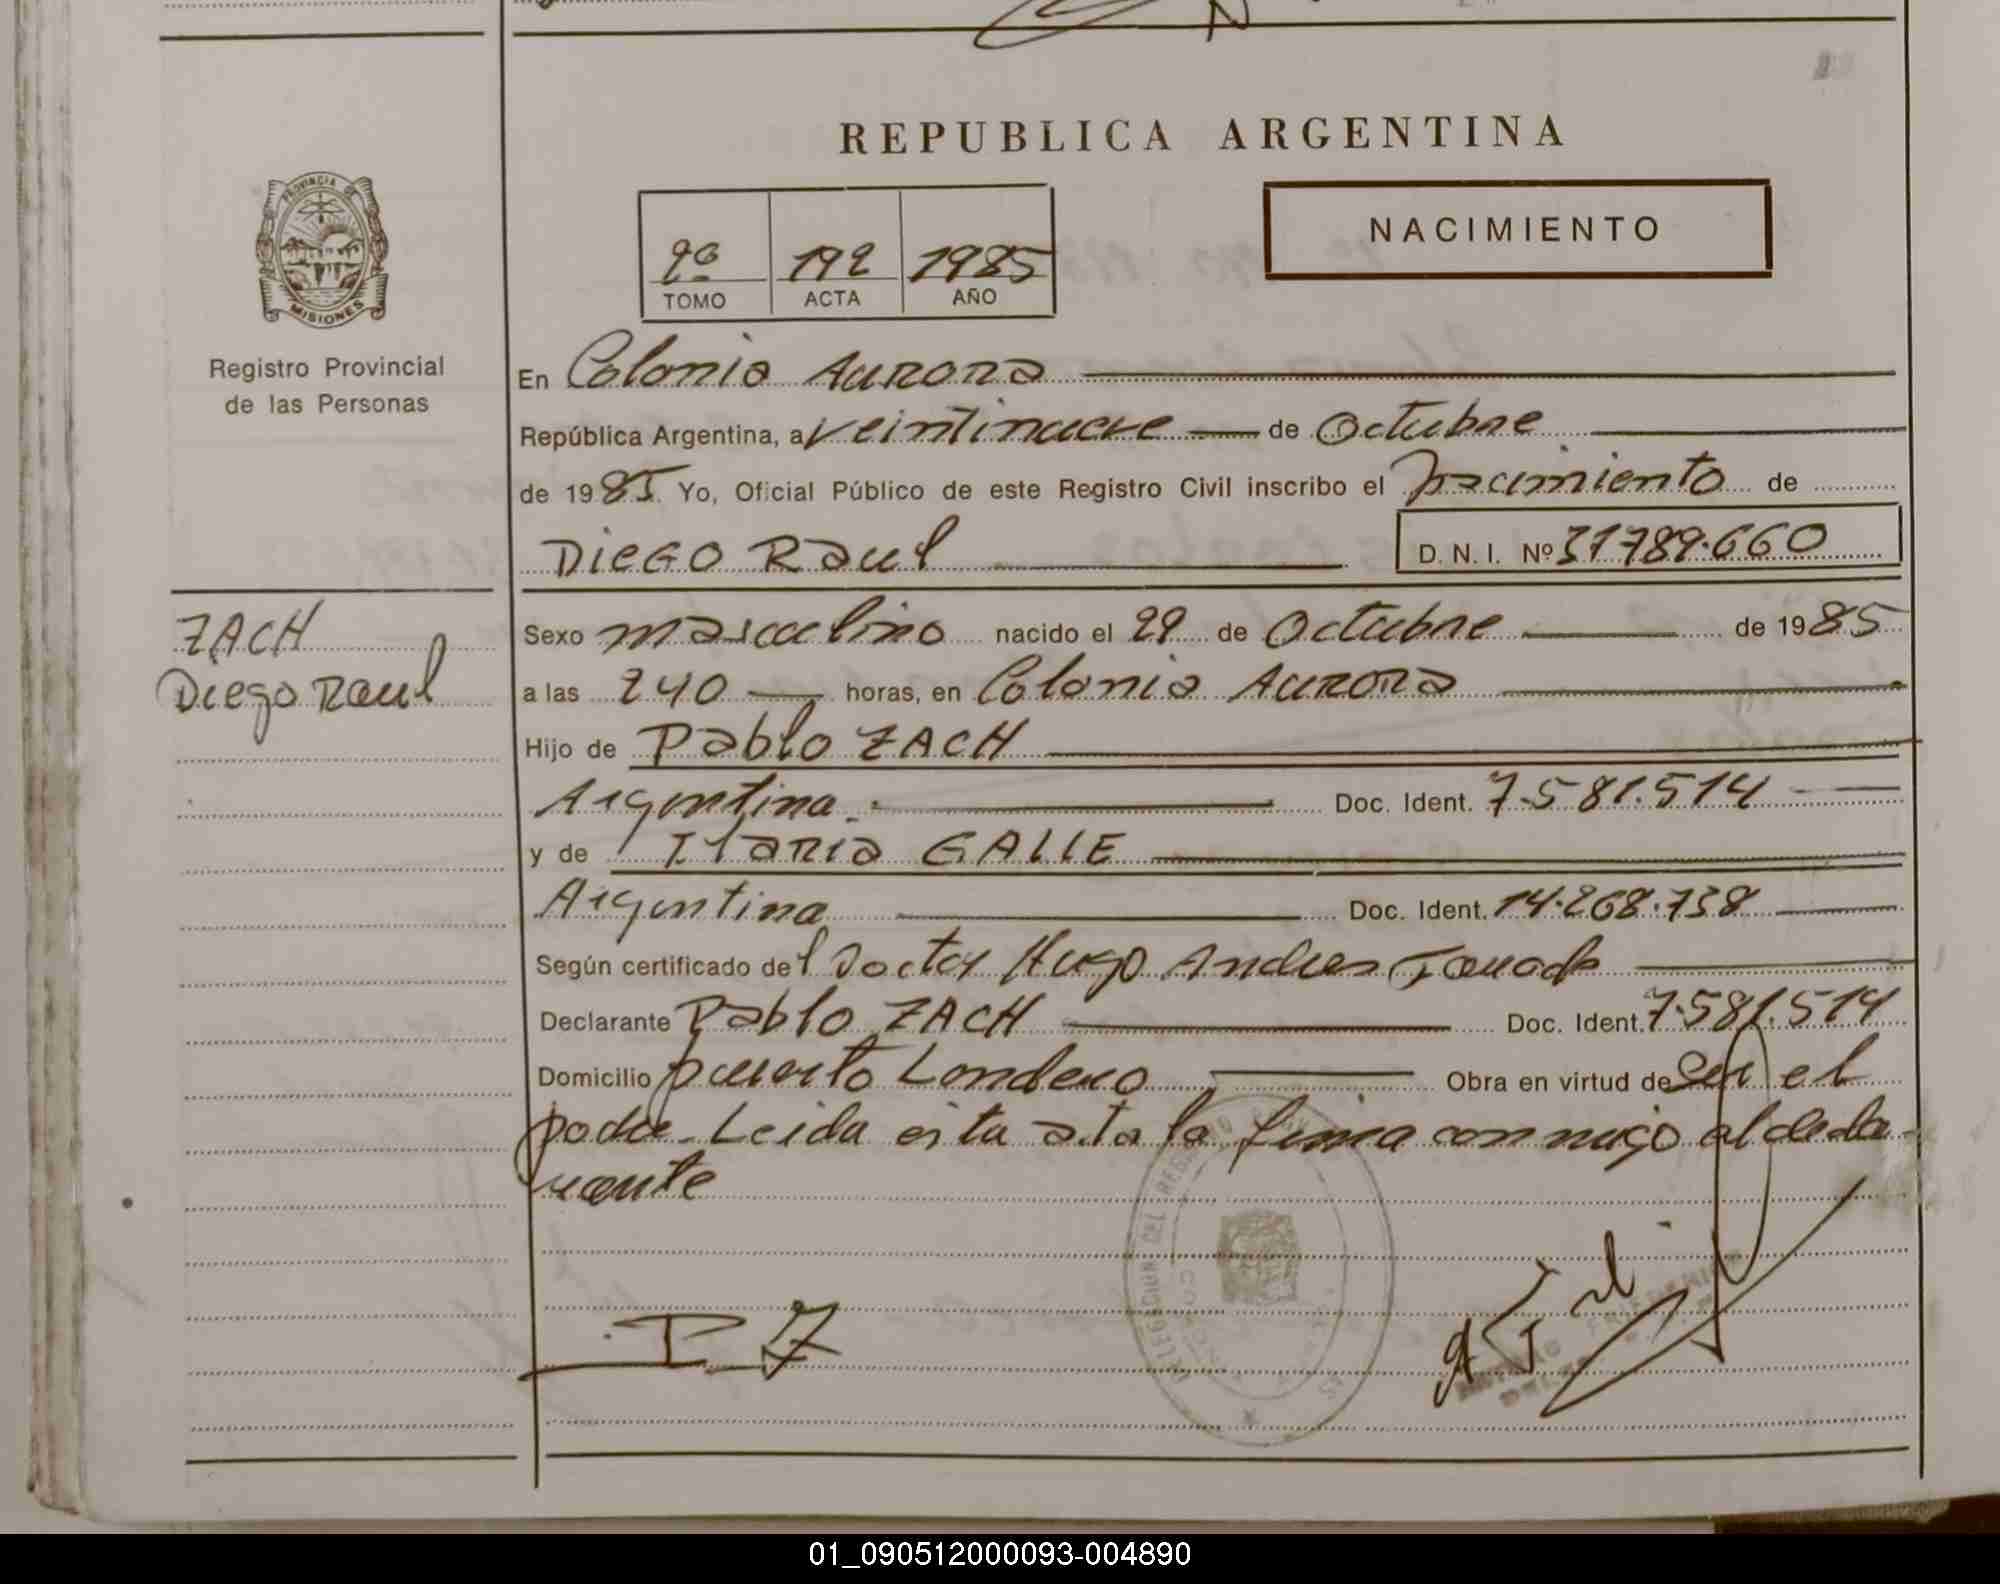 REPUBLICA ARGENTINA
PROVINCIA DE
MISIONES
Registro Provincial
de las Personas
2º 192 1985
TOMO ACTA AÑO
NACIMIENTO
En Colonia Aurora
República Argentina, a veintinueve de Octubre
de 1985 Yo, Oficial Público de este Registro Civil inscribo el nacimiento de
DIEGO Raul D. N. I. Nº 31789.660
ZACH
Diego Raul
Sexo masculino nacido el 29 de Octubre de 1985
a las 240 horas, en Colonia Aurora
Hijo de Pablo ZACH
Argentina Doc. Ident. 7.581.514
y de Ilaria GALLE
Argentina Doc. Ident. 14.268.738
Según certificado del Doctor Hugo Andres
Declarante Pablo ZACH Doc. Ident. 7.581.514
Domicilio puerto Londero Obra en virtud de ser el
padre. Leida esta acta la firma conmigo el decla-
rante
P Z
DELEGACION DEL REGISTRO
01_090512000093-004890